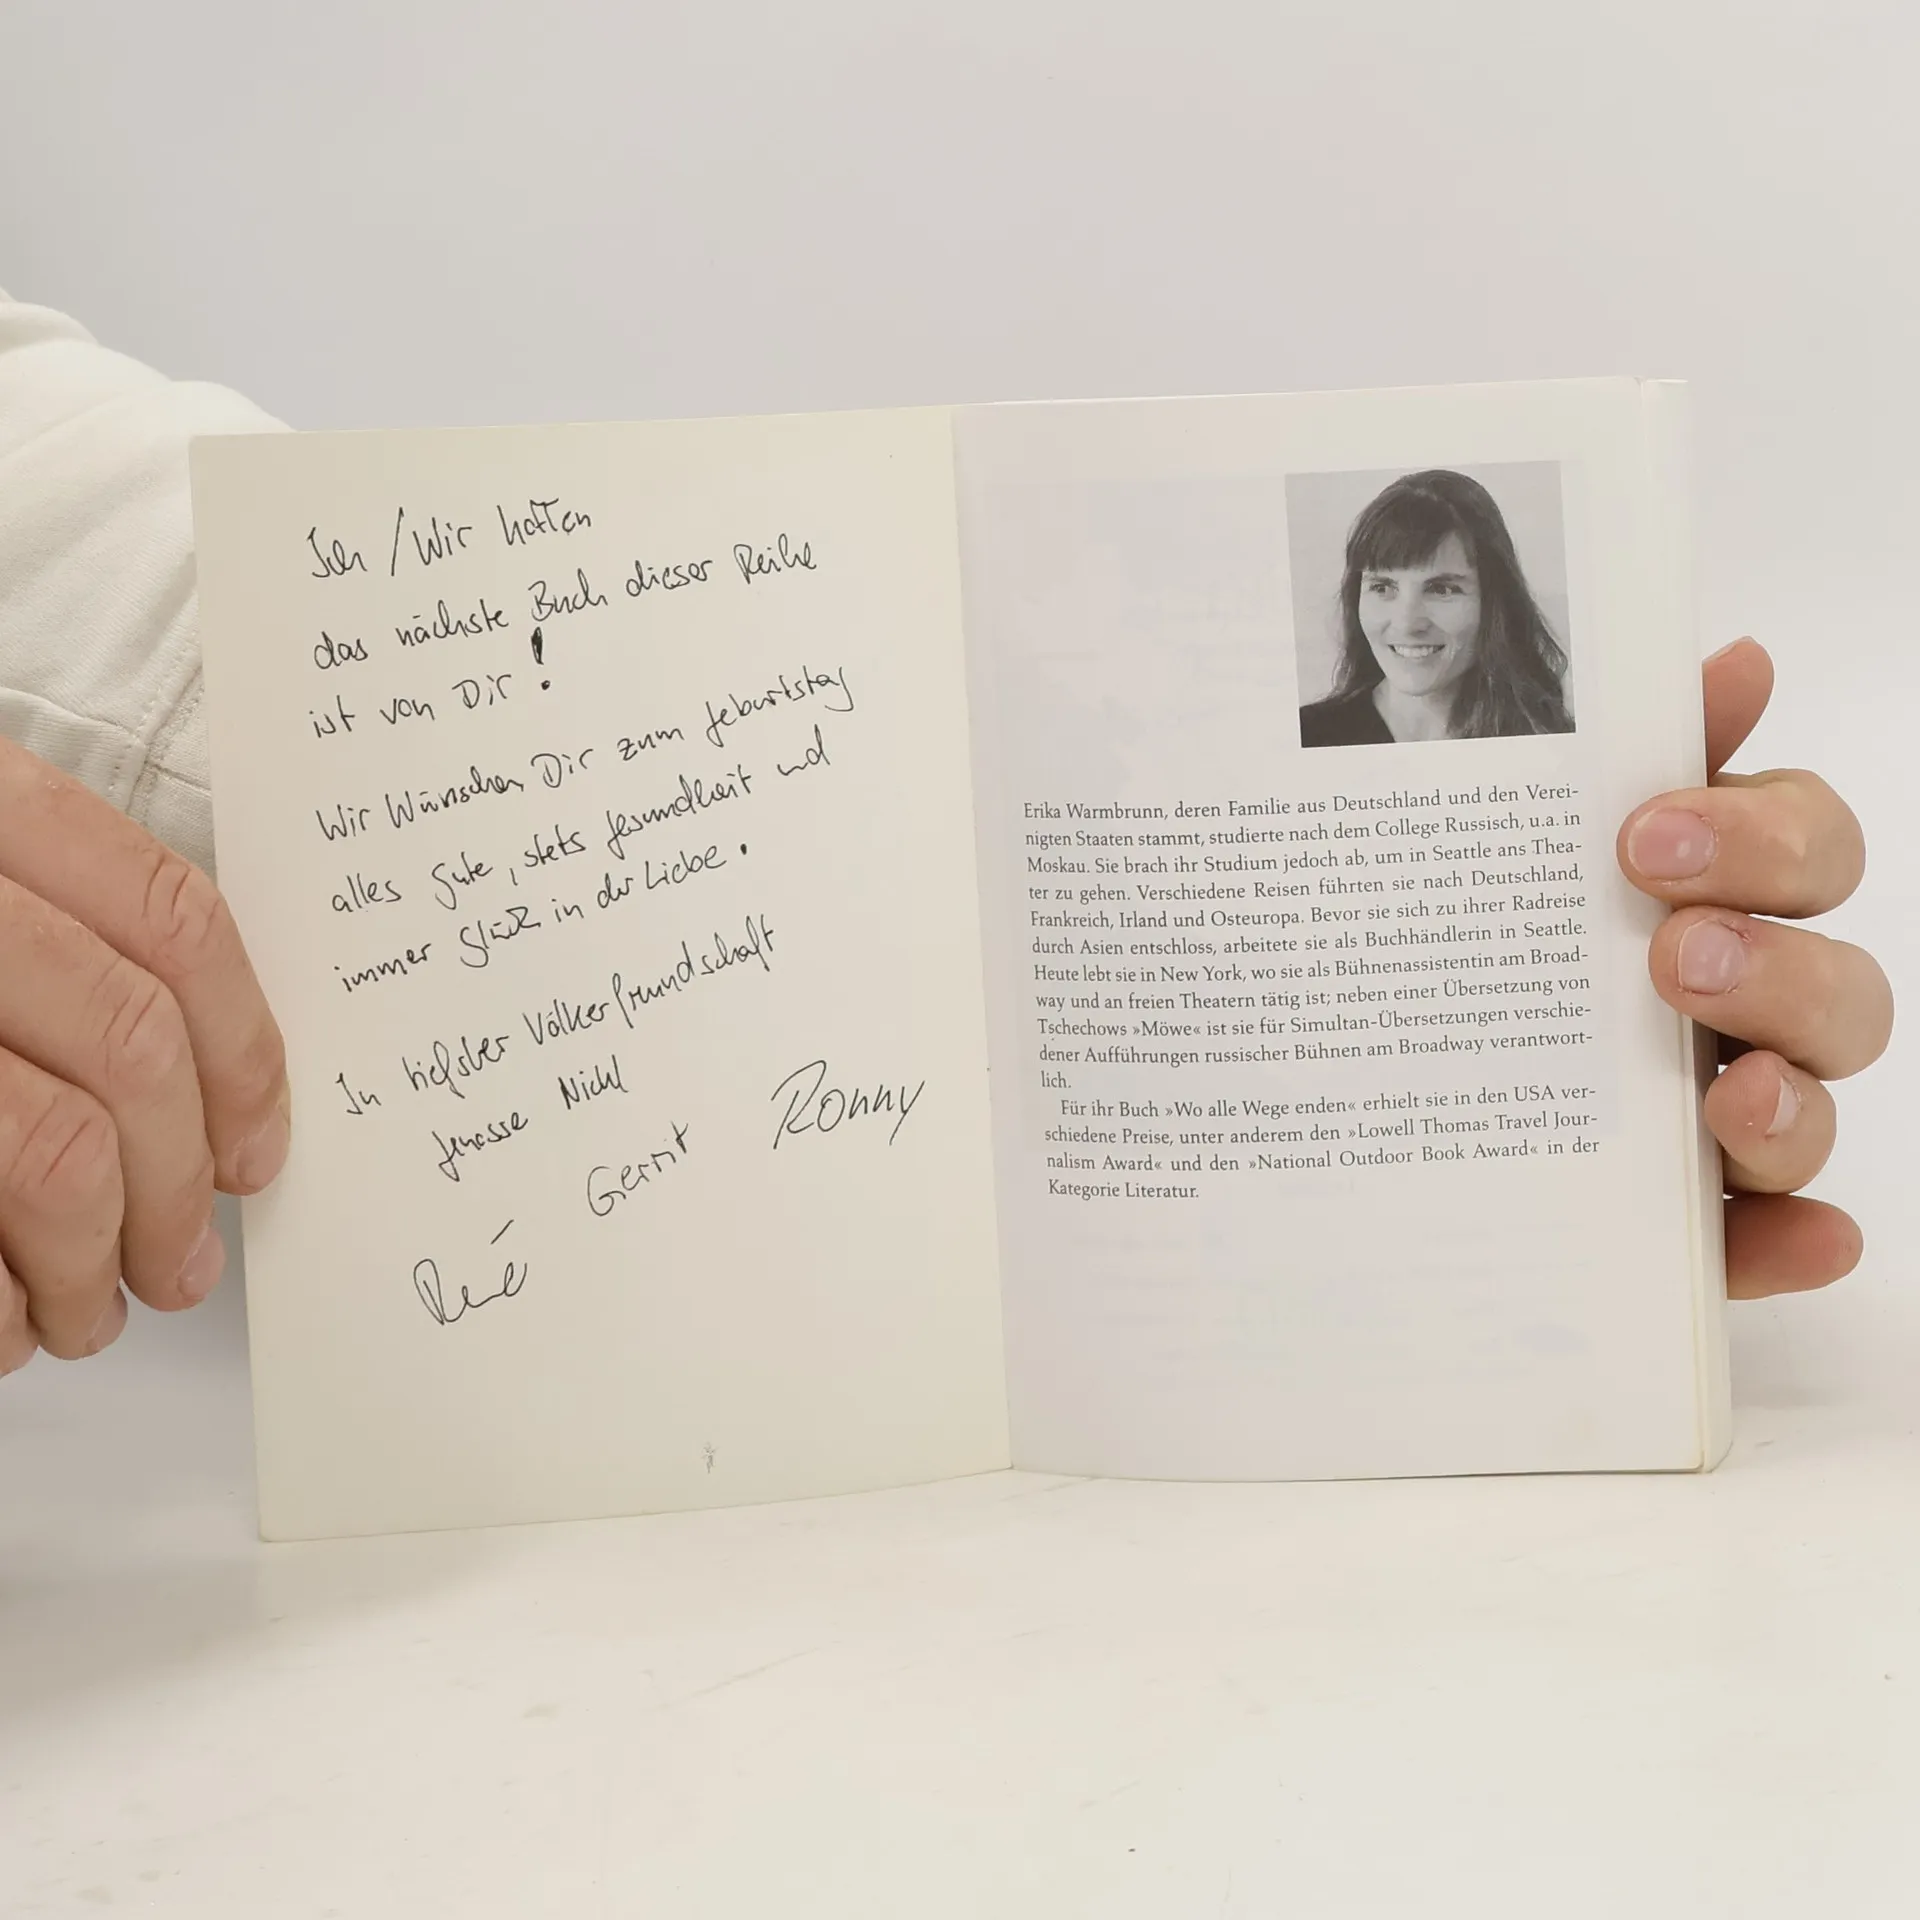 Ich / Wir hoffen
das nächste Buch dieser Reihe
ist von Dir !
Wir Wünschen Dir zum Geburtstag
alles Gute, stets Gesundheit und
immer Glück in der Liebe.
In tiefster Völkerfreundschaft
Genosse
Gerrit
Ronny
René
Erika Warmbrunn, deren Familie aus Deutschland und den Verei-
nigten Staaten stammt, studierte nach dem College Russisch, u.a. in
Moskau. Sie brach ihr Studium jedoch ab, um in Seattle ans Thea-
ter zu gehen. Verschiedene Reisen führten sie nach Deutschland,
Frankreich, Irland und Osteuropa. Bevor sie sich zu ihrer Radreise
durch Asien entschloss, arbeitete sie als Buchhändlerin in Seattle.
Heute lebt sie in New York, wo sie als Bühnenassistentin am Broad-
way und an freien Theatern tätig ist; neben einer Übersetzung von
Tschechows »Möwe« ist sie für Simultan-Übersetzungen verschie-
dener Aufführungen russischer Bühnen am Broadway verantwort-
lich.
Für ihr Buch »Wo alle Wege enden« erhielt sie in den USA ver-
schiedene Preise, unter anderem den »Lowell Thomas Travel Jour-
nalism Award« und den »National Outdoor Book Award« in der
Kategorie Literatur.